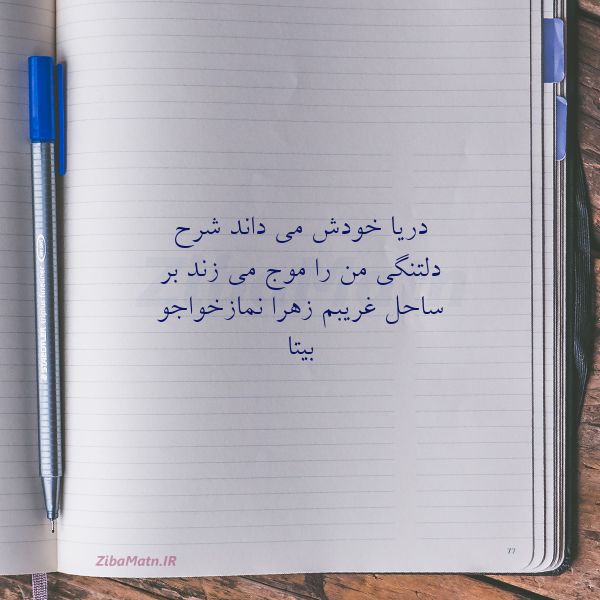 دریا خودش می داند شرح
دلتنگی من را موج می زند بر
ساحل غریبم زهرا نمازخواجو
بیتا
ZibaMatn.IR
77